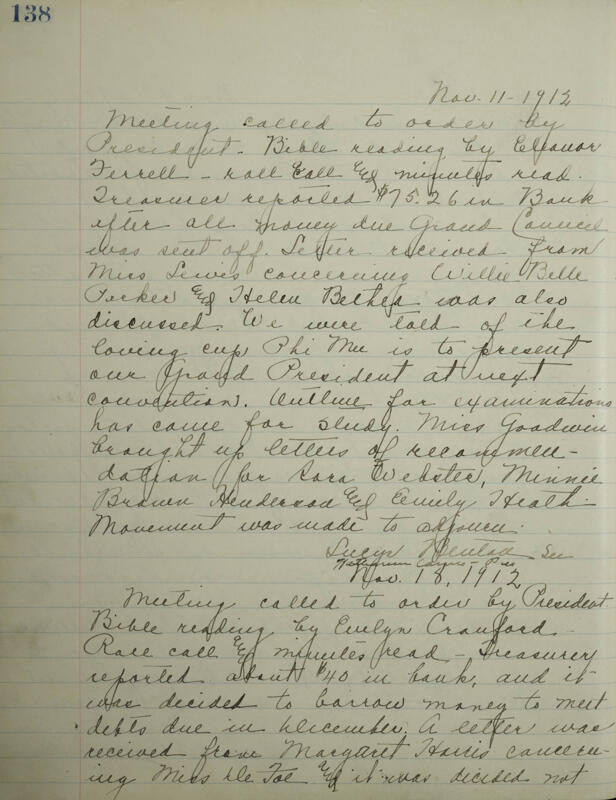 138
Nov. 11 - 1912
Meeting called to order by
President - Bible reading by Eleanor
Ferrell - roll call and minutes read.
Treasurer reported $75.26 in Bank
after all money due Grand Council
was sent off. Letter received from
Miss Lewis concerning Willie Belle
Parker and Helen Bethea was also
discussed. We were told of the
loving cup Phi Mu is to present
our Grand President at next
convention. Outline for examinations
has come for study. Miss Goodwin
brought up letters of recommen-
dation for Sara Webster, Minnie
Brown Henderson and Emily Heath.
Movement was made to adjourn.
Lucyr Sec
Pres
Nov. 18, 1912
Meeting called to order by President
Bible reading by Evelyn Cranford -
Role call and minutes read - Treasurer
reported about $40 in bank, and it
was decided to borrow money to meet
debts due in December. A letter was
received from Margaret Harris concern-
ing Miss and it was decided not